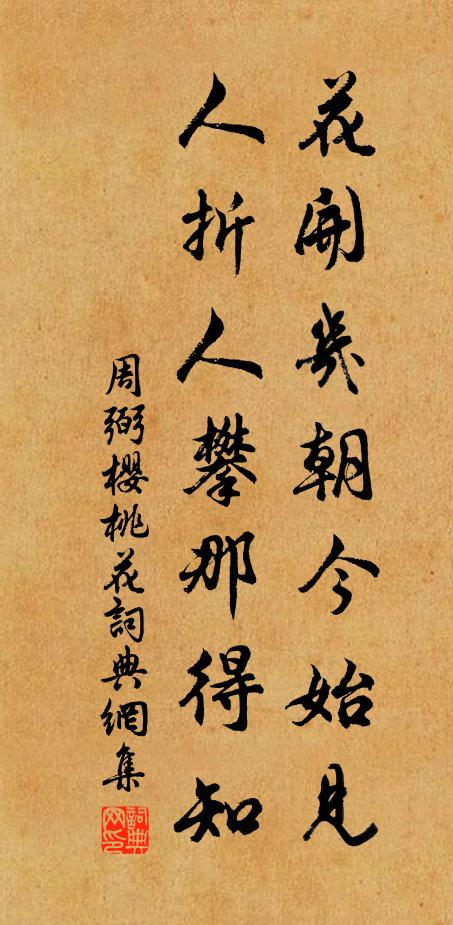 花開幾朝今始見
人折人攀那得知
周弼櫻桃花詞典網集
詞典
网印